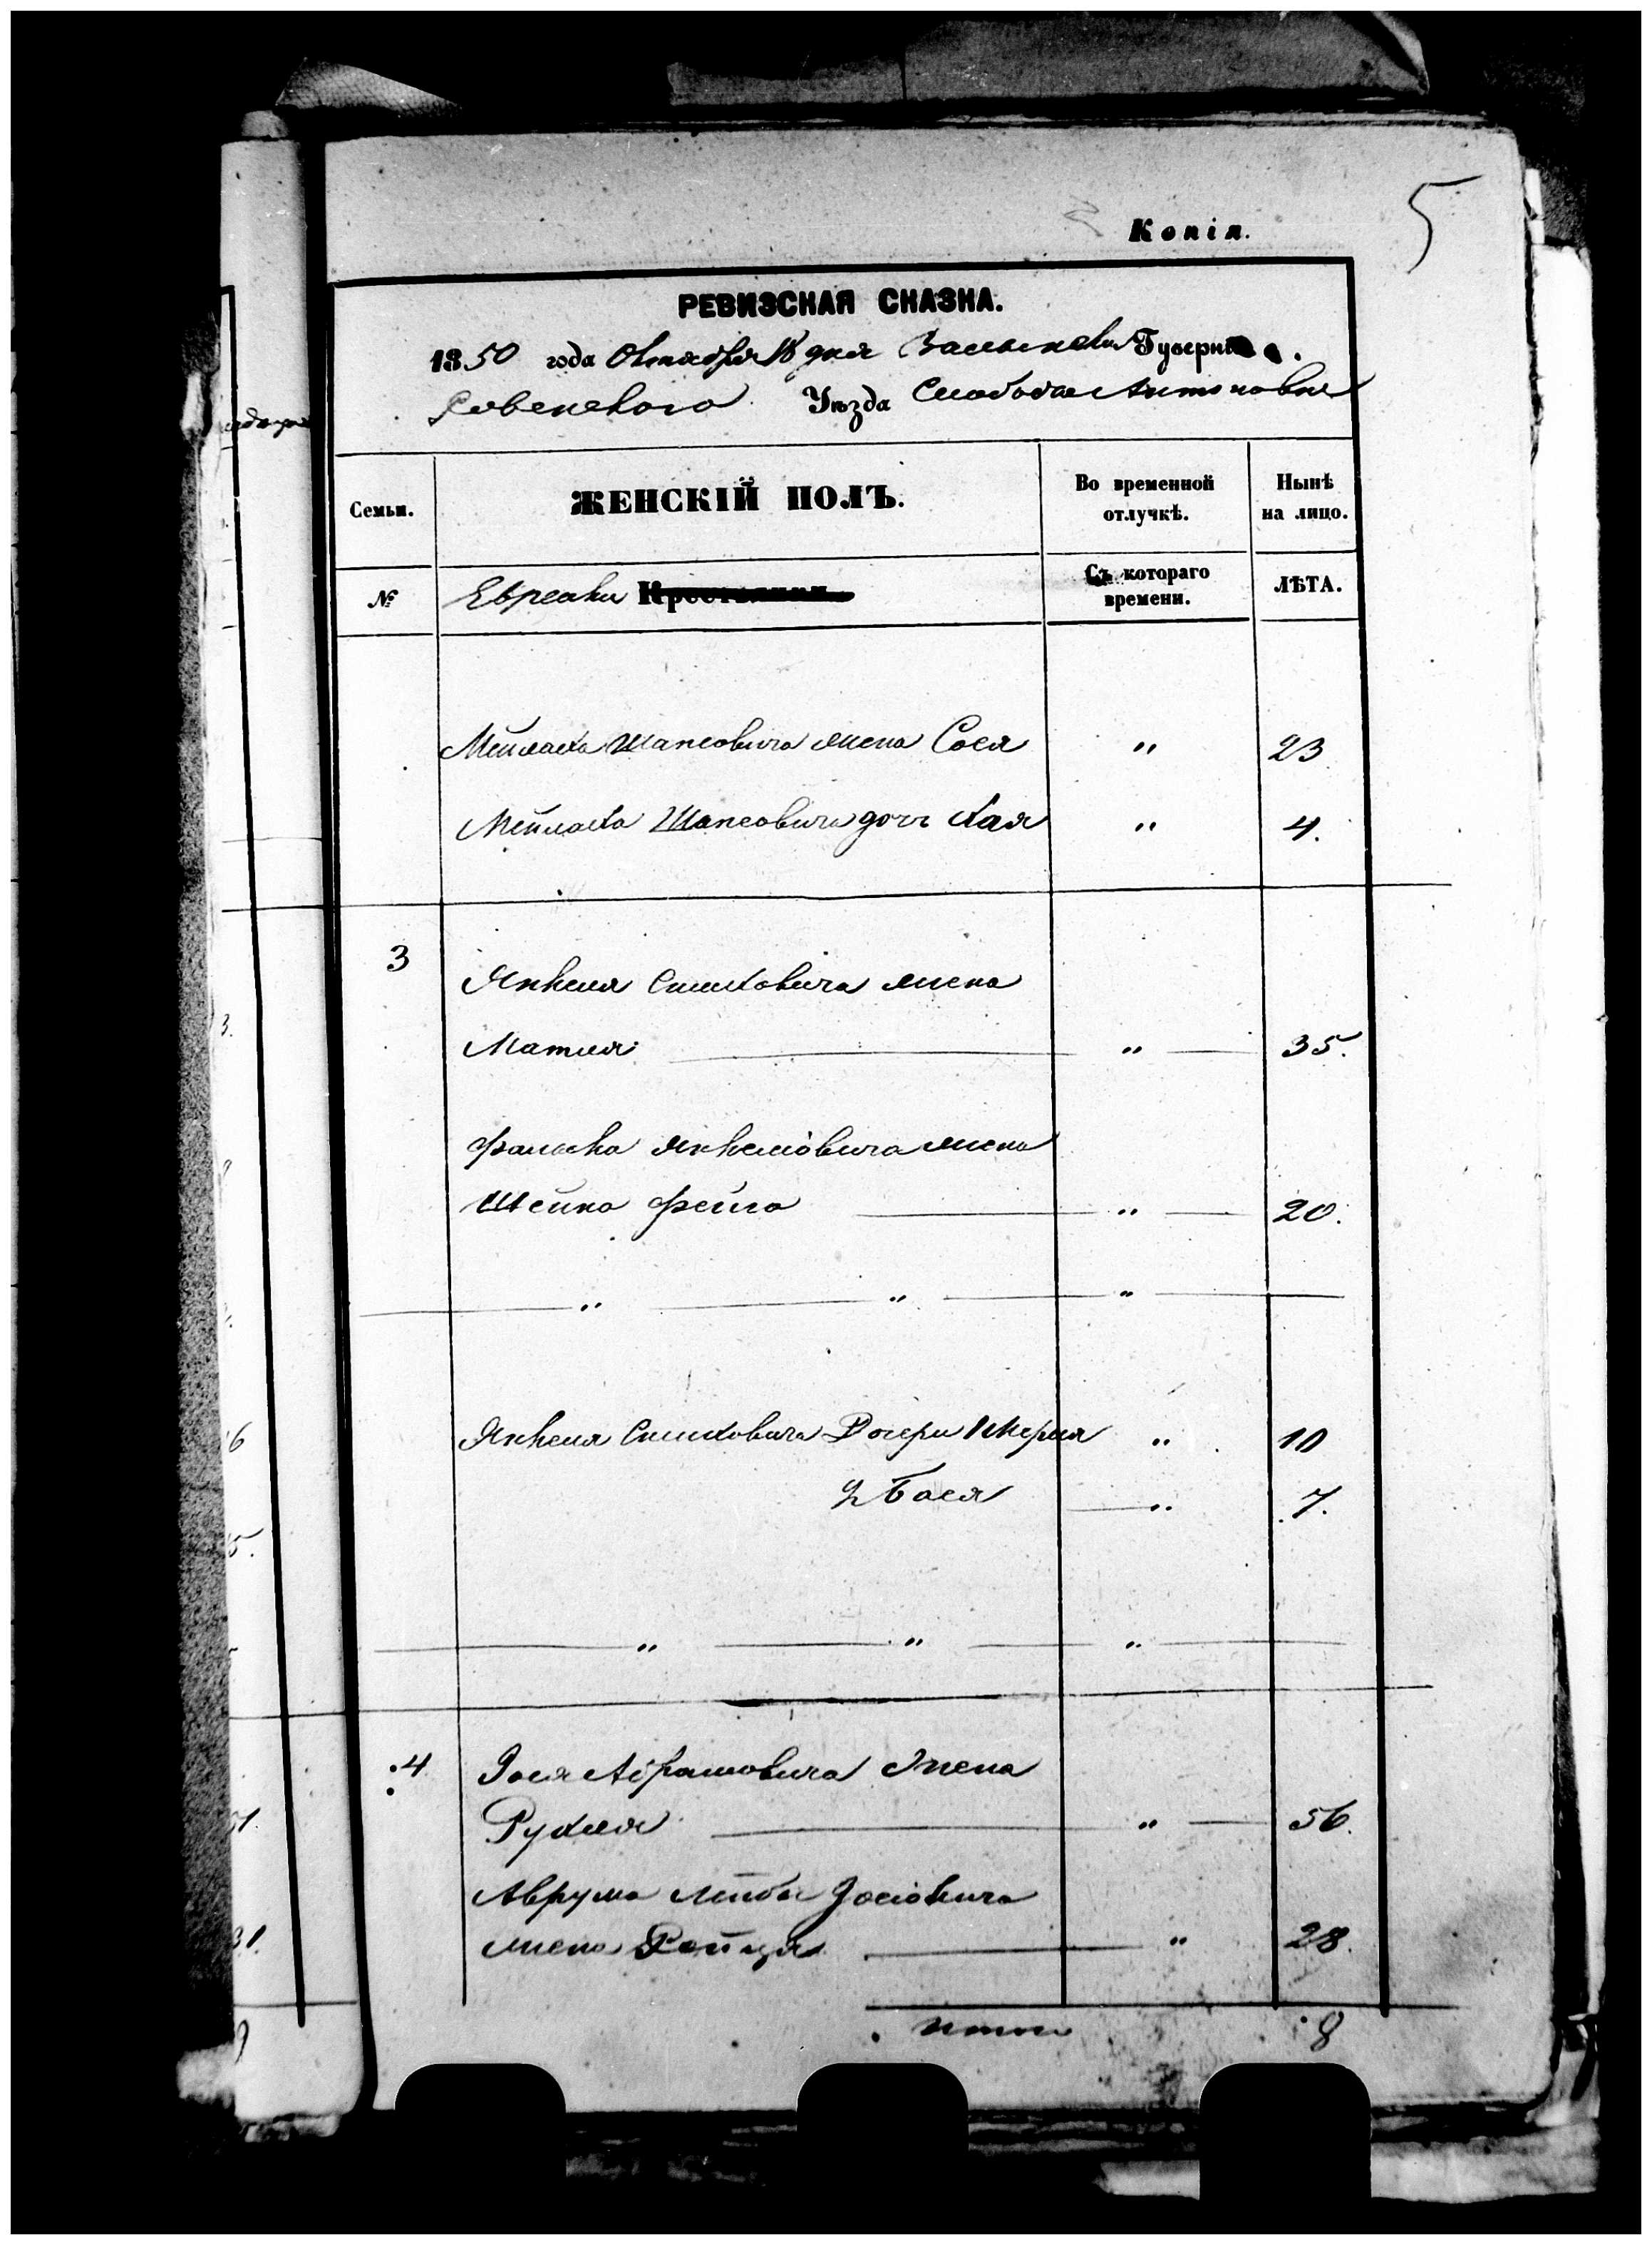 5
Копія.
РЕВИЗСКАЯ СКАЗКА.
1850 года Октября 18 дня Валынской Губерніи.
Ровенского Уѣзда Слободы Антоновки
Семьи. ЖЕНСКІЙ ПОЛЪ. Во временной отлучкѣ. Нынѣ на лицо.
№ Еврейки Съ котораго времени. ЛѢТА.
Мейлаха Шапсовича жена Сося " 23
Мейлаха Шапсовича дочь Хая " 4.
3
Янкеля Симховича жена
Матля " 35.
Фалька Янкелiовича жена
Шейна Фейга " 20.
" " "
Янкеля Симховича Дочери 1 Мерля " 10
2 Бася " 7.
" " "
4 Іося Абрамовича Жена
Рухля " 56.
Аврума Лейбы Іосіовича
жена Рейця " 28.
Итого 8